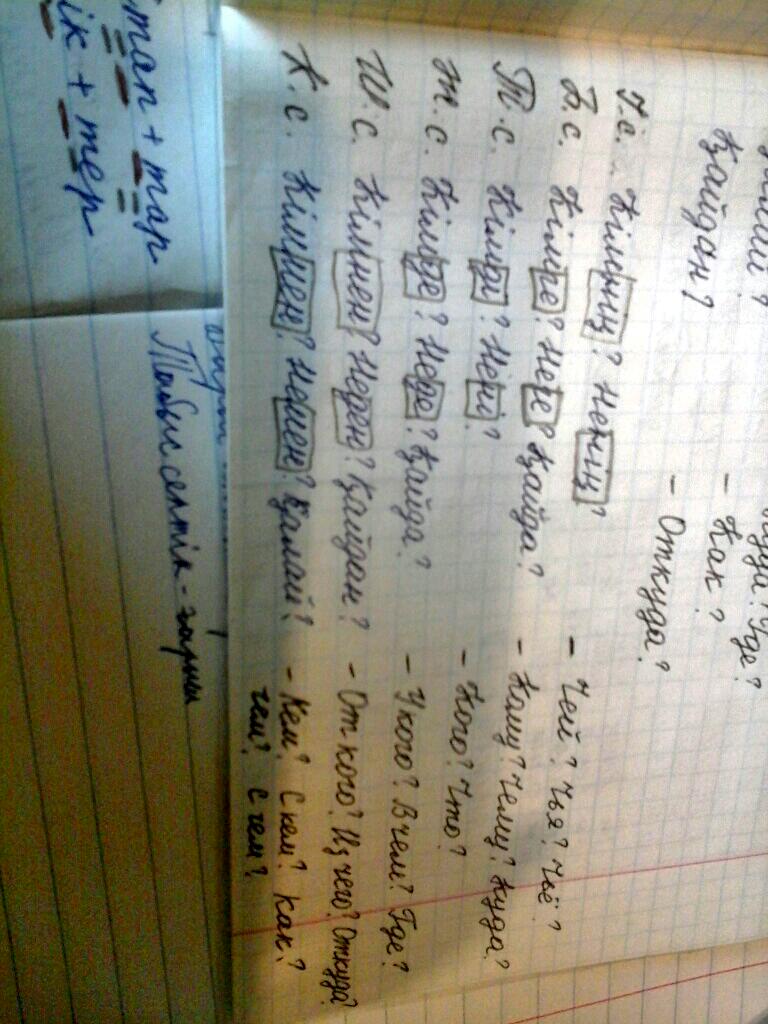 - Как?
Қайдан? - Откуда?
І.с. Кімнің? Ненің? - Чей? Чья? Чьё?
Б.с. Кімге? Неге? Қайда? - Кому? Чему? Куда?
Т.с. Кімді? Нені? - Кого? Что?
Ж.с. Кімде? Неде? Қайда? - У кого? В чем? Где?
Ш.с. Кімнен? Неден? Қайдан? - От кого? Из чего? Откуда?
К.с. Кіммен? Немен? Қалай? - Кем? С кем? Как?
Чем? С чем?
тап + тар
ік + тер
Табыс септік -